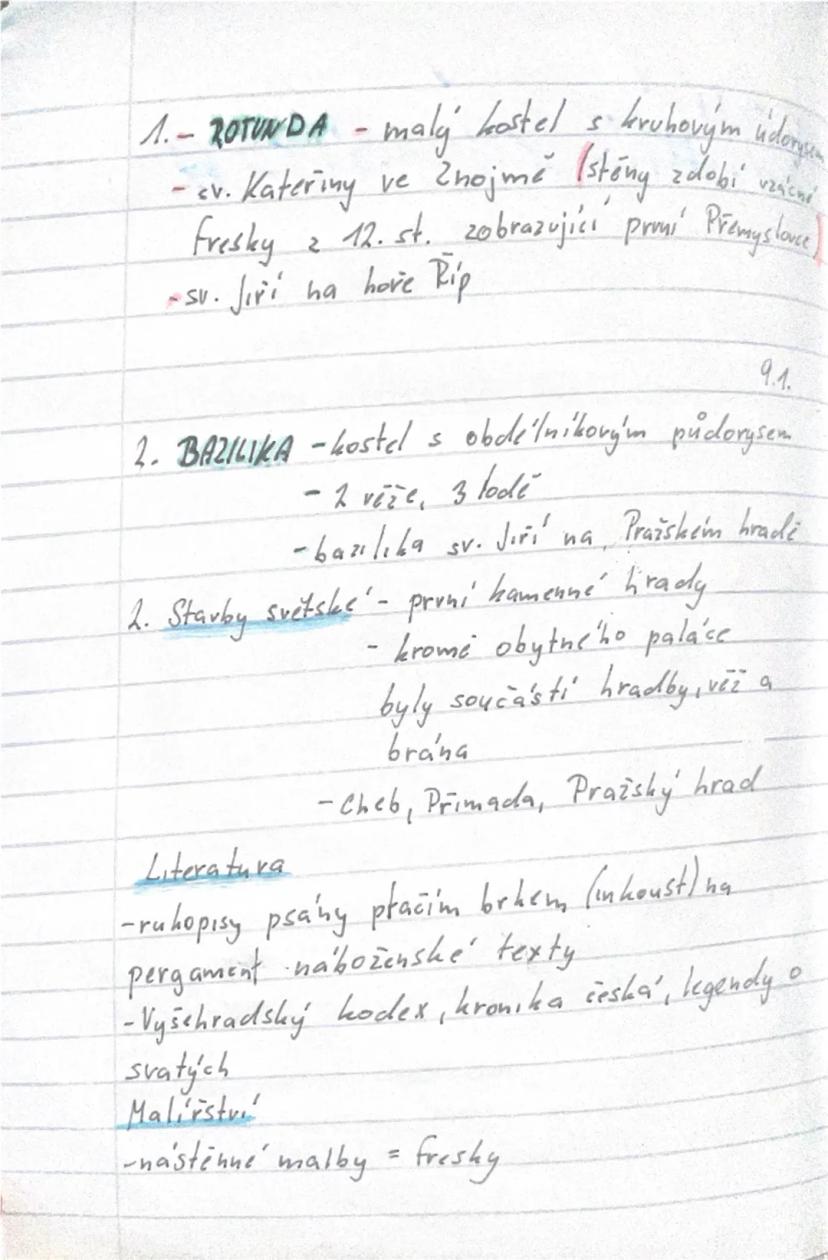 1. - ROTUNDA - malý kostel s kruhovým údorysem
- sv. Kateřiny ve Znojmě (stěny zdobí vzácné
fresky z 12. st. zobrazující první Přemyslovce)
- sv. Jiří na hoře Říp
9.1.
2. BAZILIKA - kostel s obdélníkovým půdorysem
- 2 věže, 3 lodě
- bazilika sv. Jiří na Pražském hradě
2. Stavby světské - první kamenné hrady
- kromě obytného paláce
byly součástí hradby, věž a
brána
- Cheb, Přimada, Pražský hrad
Literatura
- rukopisy psány ptačím brkem (inkoust) na
pergament náboženské texty
- Vyšehradský kodex, kronika česká, legendy o
svatých
Malířství
- nástěnné malby = fresky